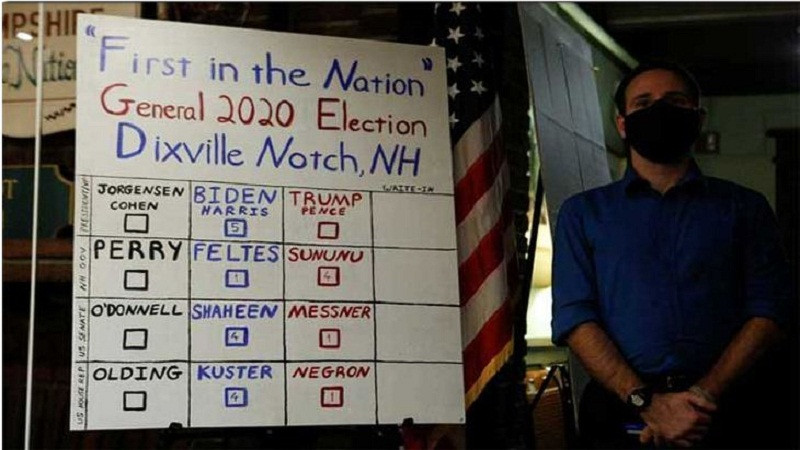 MPSHIRE
Nation
"First in the Nation"
General 2020 Election
Dixville Notch, NH
PRESIDENT
JORGENSEN BIDEN TRUMP WRITE-IN
COHEN HARRIS PENCE
5
NH GOV.
PERRY FELTES SUNUNU
1 4
US SENATE
O'DONNELL SHAHEEN MESSNER
4 1
US HOUSE REP
OLDING KUSTER NEGRON
4 1